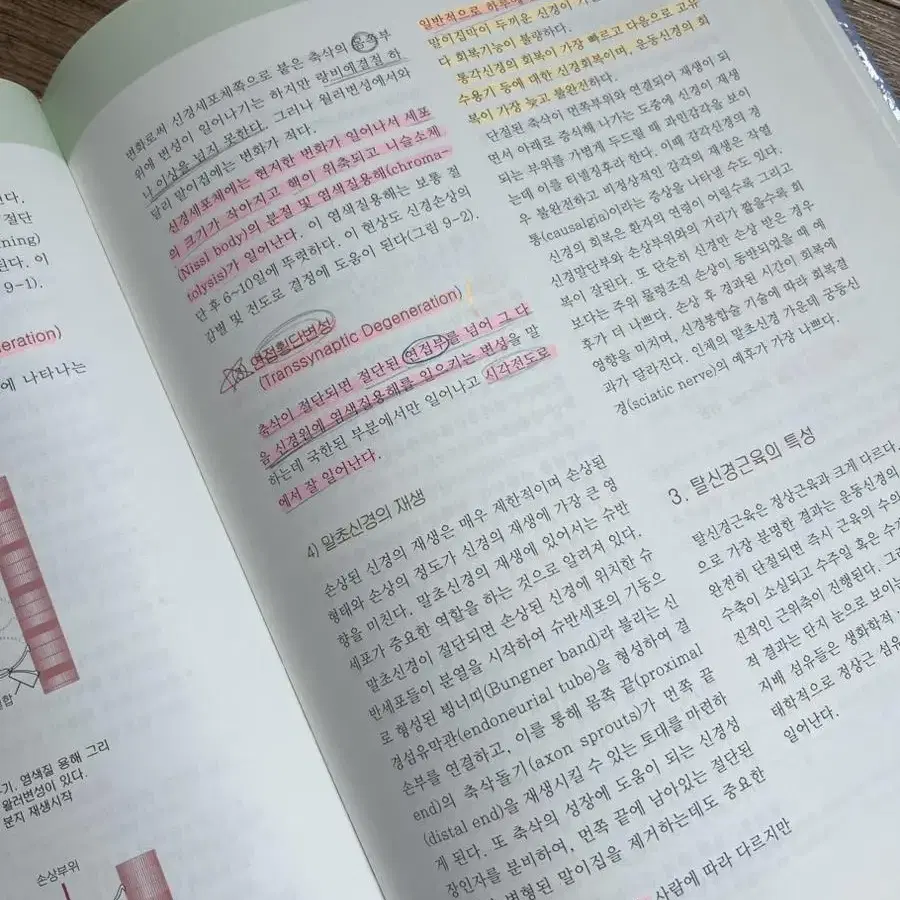 진다.
절단
ning)
된다. 이
9-1).
eration)
에 나타나는
합
기, 염색질 용해 그리
월러변성이 있다.
분지 재생시작
손상부위
신경세포체쪽으로 붙은 축삭의 몸쪽부
위에 변성이 일어나기는 하지만 랑비에결절 하
나 이상을 넘지 못한다. 그러나 월러변성에서와
달리 말이집에는 변화가 적다.
신경세포체에는 현저한 변화가 일어나서 세포
의 크기가 작아지고 핵이 위축되고 니슬소체
(Nissl body)의 분절 및 염색질용해(chroma-
tolysis)가 일어난다. 이 염색질용해는 보통 절
단 후 6~10일에 뚜렷하다. 이 현상도 신경손상의
감별 및 전도로 결정에 도움이 된다(그림 9-2).
3) 연접횡단변성
(Transsynaptic Degeneration)
축삭이 절단되면 절단된 연접부를 넘어 그 다
음 신경원에 염색질용해를 일으키는 변성을 말
하는데 국한된 부분에서만 일어나고 시각전도로
에서 잘 일어난다.
4) 말초신경의 재생
손상된 신경의 재생은 매우 제한적이며 손상된
형태와 손상의 정도가 신경의 재생에 가장 큰 영
향을 미친다. 말초신경의 재생에 있어서는 슈반
세포가 중요한 역할을 하는 것으로 알려져 있다.
말초신경이 절단되면 손상된 신경에 위치한 슈
반세포들이 분열을 시작하여 슈반세포의 기둥으
로 형성된 빙너띠(Bungner band)라 불리는 신
경섬유막관(endoneurial tube)을 형성하여 결
손부를 연결하고, 이를 통해 몸쪽 끝(proximal
end)의 축삭돌기(axon sprouts)가 먼쪽 끝
(distal end)을 재생시킬 수 있는 토대를 마련하
게 된다. 또 축삭의 성장에 도움이 되는 신경성
장인자를 분비하여, 먼쪽 끝에 남아있는 절단된
변형된 말이집을 제거하는데도 중요한
일반적으로 하루에
말이집막이 두꺼운 신경이 가
다 회복기능이 불량하다.
통각신경의 회복이 가장 빠르고 다음으로 고유
수용기 등에 대한 신경회복이며, 운동신경의 회
복이 가장 늦고 불완전하다.
단절된 축삭이 먼쪽부위와 연결되어 재생이 되
면서 아래로 증식해 나가는 도중에 신경이 재생
되는 부위를 가볍게 두드릴 때 과민감각을 보이
는데 이를 티넬징후라 한다. 이때 감각신경의 경
우 불완전하고 비정상적인 감각의 재생은 작열
통(causalgia)이라는 증상을 나타낼 수도 있다.
신경의 회복은 환자의 연령이 어릴수록 그리고
신경말단부와 손상부위와의 거리가 짧을수록 회
복이 잘된다. 또 단순히 신경만 손상 받은 경우
보다는 주위 물렁조직 손상이 동반되었을 때 예
후가 더 나쁘다. 손상 후 경과된 시간이 회복에
영향을 미치며, 신경봉합술 기술에 따라 회복결
과가 달라진다. 인체의 말초신경 가운데 궁둥신
경(sciatic nerve)의 예후가 가장 나쁘다.
3. 탈신경근육의 특성
탈신경근육은 정상근육과 크게 다르다.
로 가장 분명한 결과는 운동신경의
완전히 단절되면 즉시 근육의 수의
수축이 소실되고 수주일 혹은 수개
직적인 근위축이 진행된다. 그러
적 결과는 단지 눈으로 보이는
지배 섬유들은 생화학적
태학적으로 정상근 섬유
일어난다.
사람에 따라 다르지만